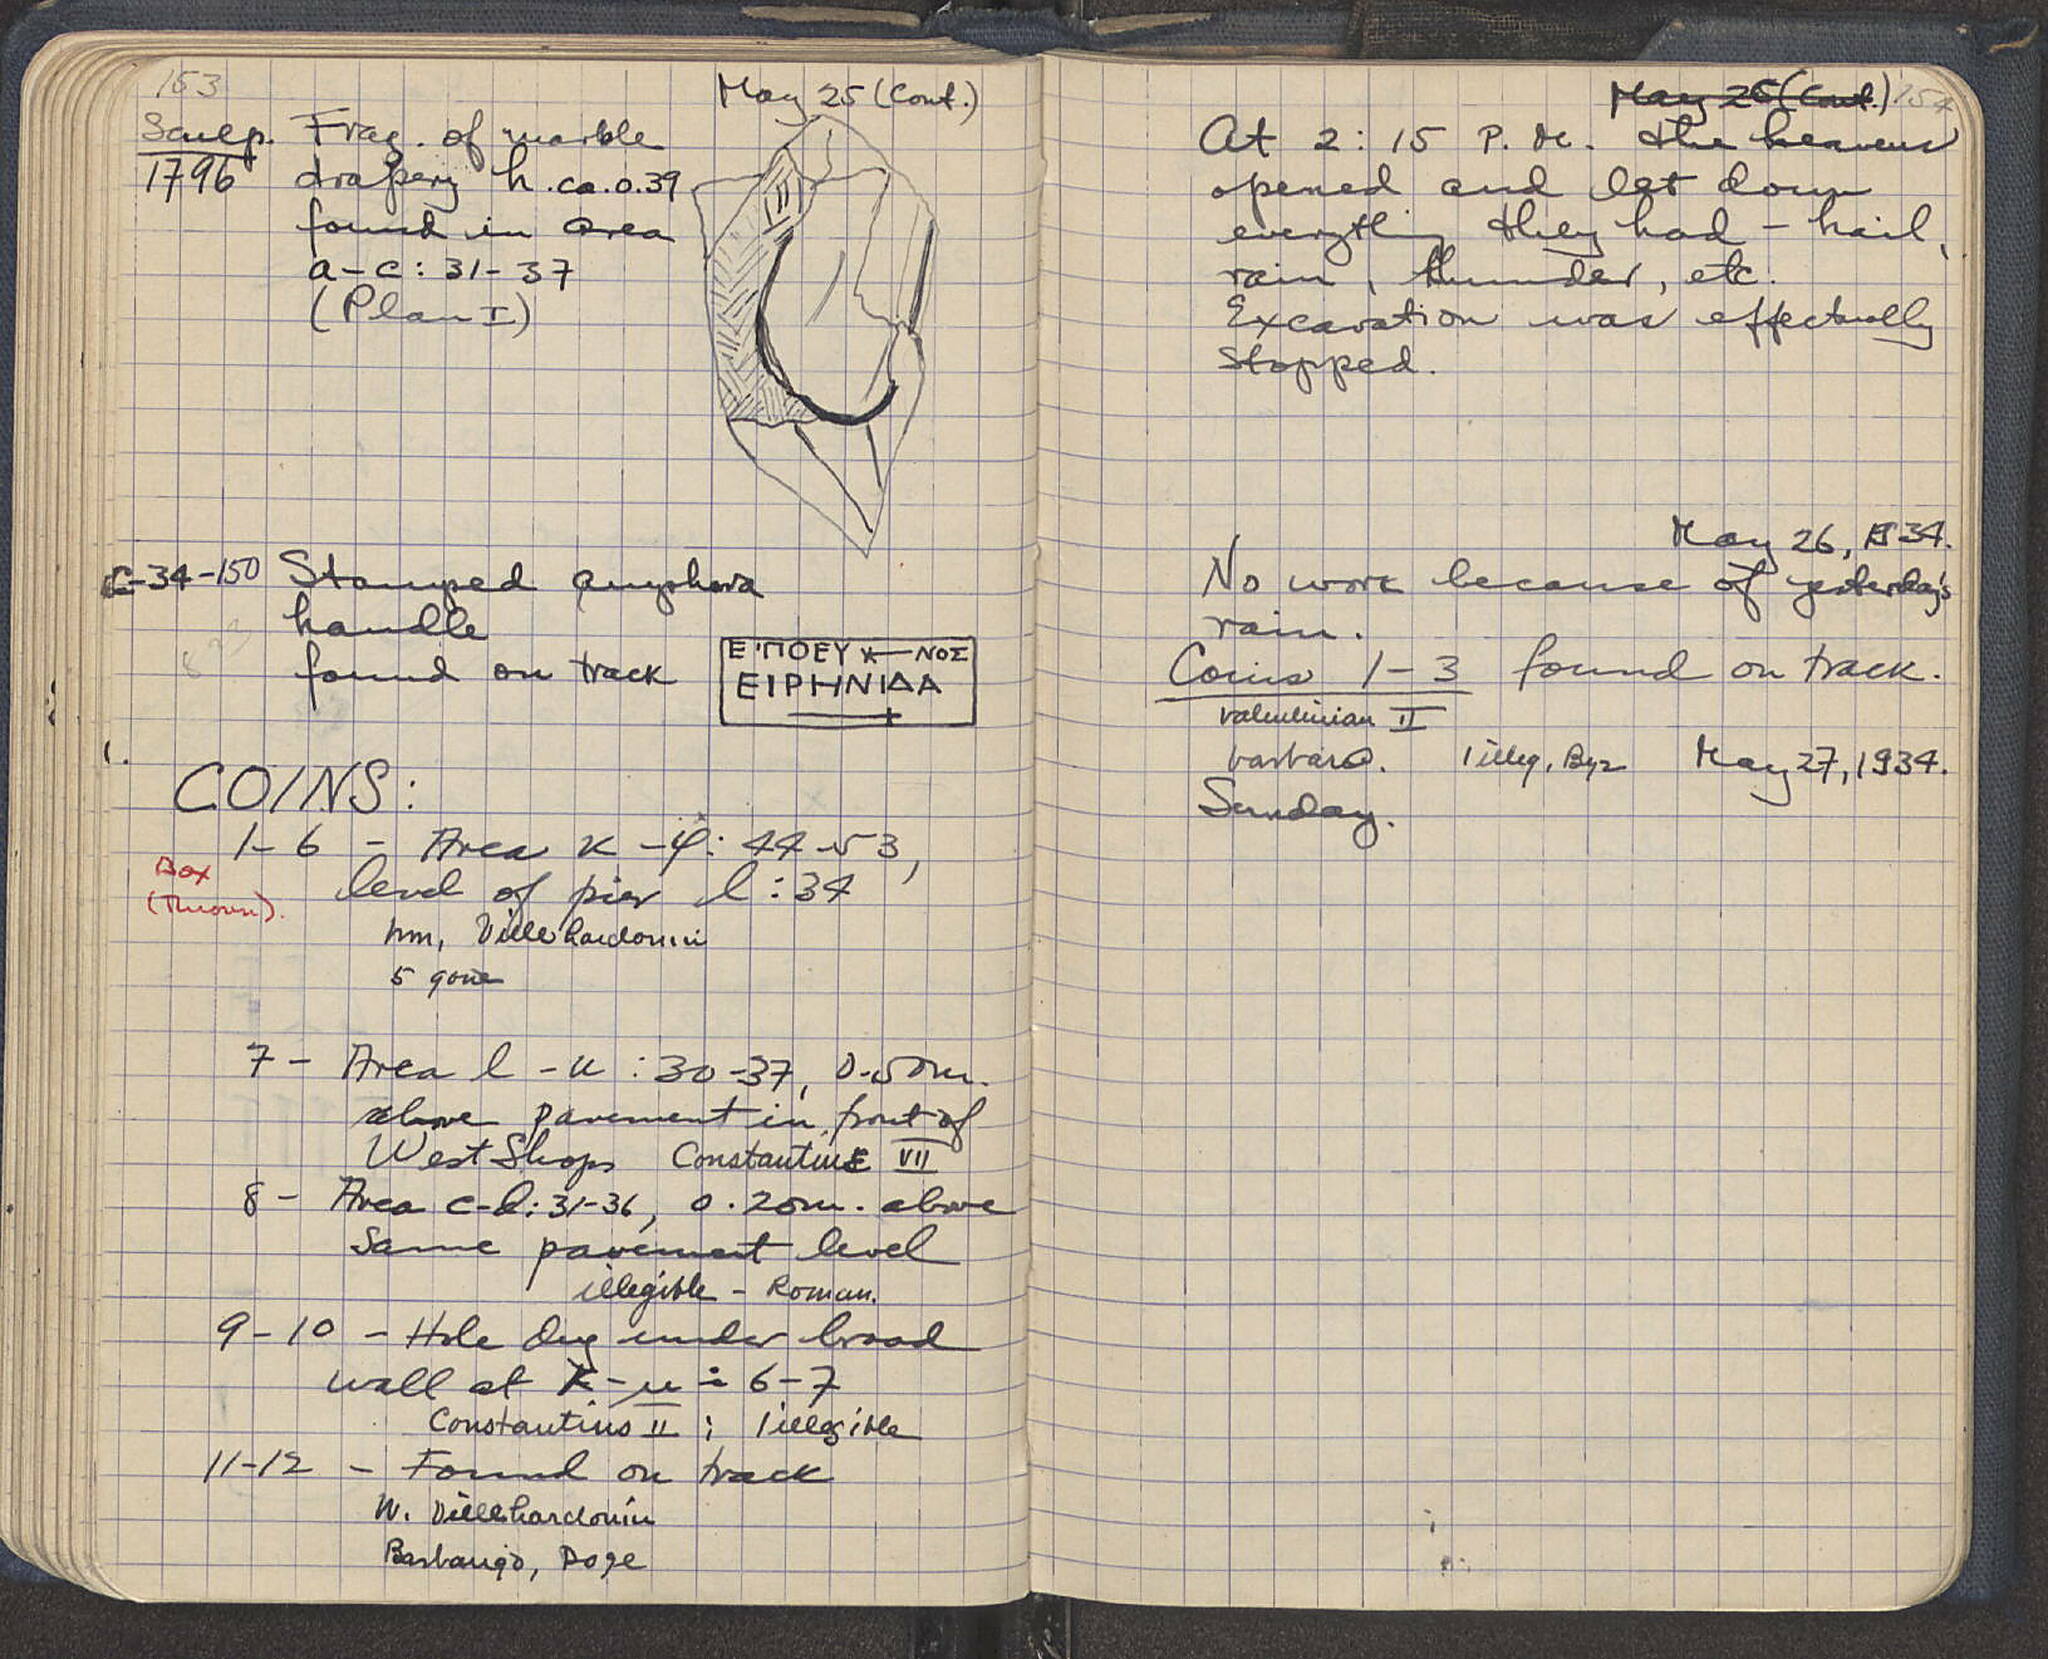 153
May 25 (Cont.)
Sculp. Frag. of marble
1796 drapery h. ca. 0.39
found in area
a-c: 31-37
(Plan I)
C-34-150 Stamped amphora
handle
found on track
ΕΠΟΕΥ Κ—ΝΟΣ
ΕΙΡΗΝΙΔΑ
COINS:
1-6 - Area κ-φ: 44-53,
Box
level of pier l: 34
(Thrown).
hm, Villehardouin
5 gone
7 - Area l-u: 30-37, 0.50m.
above pavement in front of
West Shops Constantine VII
8 - Area c-l: 31-36, 0.20m. above
same pavement level
illegible - Roman.
9-10 - Hole dug under broad
wall at κ-μ: 6-7
Constantius II; 1 illegible
11-12 - Found on track
W. Villehardouin
Barbarigo, Doge
May 26 (Cont.) 154
At 2:15 P.M. the heavens
opened and let down
everything they had - hail,
rain, thunder, etc.
Excavation was effectually
stopped.
May 26, 1934.
No work because of yesterday's
rain.
Coins 1-3 found on track.
Valentinian II
barbaro. 1 illeg. Byz May 27, 1934.
Sunday.